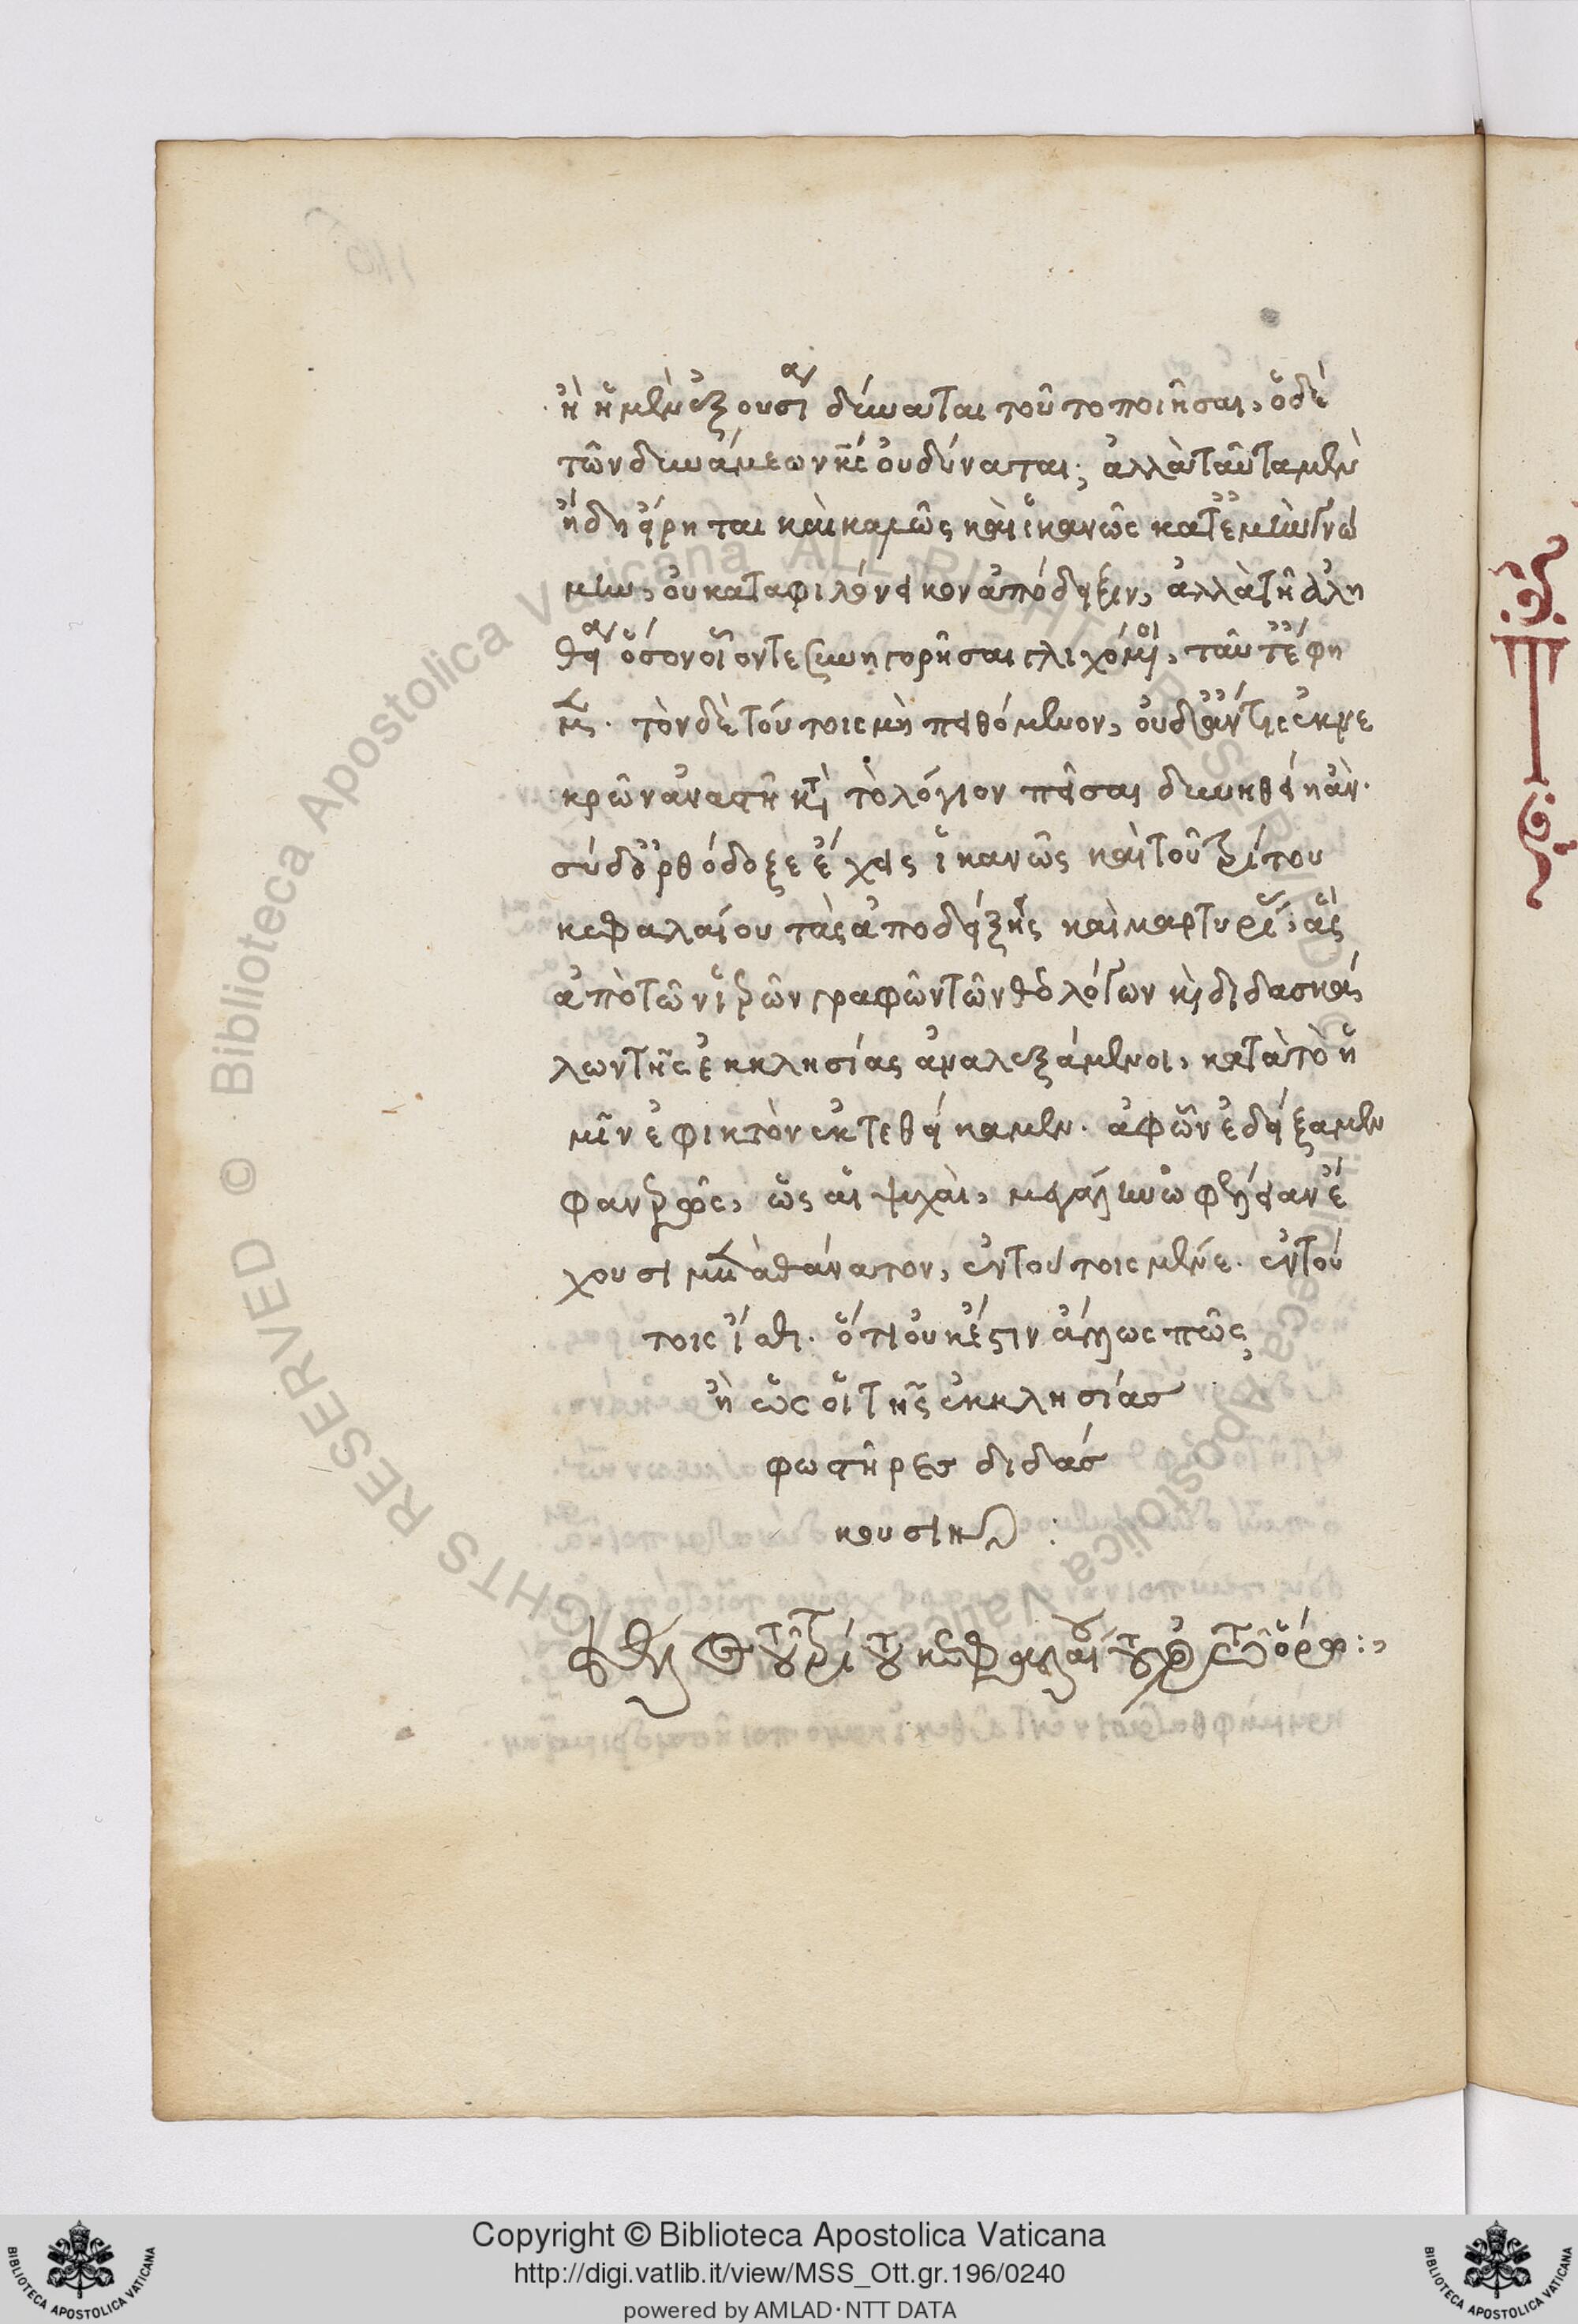 ἢ ἡ μὲν ἐξουσία δύναται τοῦτο ποιῆσαι, ὁ δὲ
τῶν δυνάμεων κύριος οὐ δύναται; ἀλλὰ ταῦτα μὲν
ἤδη εἴρηται καὶ καλῶς καὶ ἱκανῶς κατ' ἐμὴν γνώ
μην, οὐ κατὰ φιλόνεικον ἀπόδειξιν, ἀλλὰ τῇ ἀλη
θείᾳ ὅσον οἷόν τε συνηγορῆσαι γλιχόμενοι, ταῦτ' ἔφη
μεν. τὸν δὲ τούτοις μὴ πειθόμενον, οὐδ' ἄν τις ἐκ νε
κρῶν ἀναστῇ κατὰ τὸ λόγιον πεῖσαι δυνηθείη ἄν.
σὺ δ' ὀρθόδοξε ἔχεις ἱκανῶς καὶ τοῦ τρίτου
κεφαλαίου τὰς ἀποδείξεις καὶ μαρτυρίας, ἃς
ἀπὸ τῶν ἱερῶν γραφῶν τῶν θεολόγων καὶ διδασκά
λων τῆς ἐκκλησίας ἀναλεξάμενοι, κατὰ τὸ ἡ
μῖν ἐφικτὸν ἐκτεθείκαμεν. ἀφ' ὧν ἐδείξαμεν
φανερῶς, ὡς αἱ ψυχαὶ, μεγάλην ὠφέλειαν ἔ
χουσι μετὰ θάνατον, ἐν τούτοις μένε. ἐν τού
τοις ἴσθι. ὅτι οὐκ ἔστιν ἄλλως πως
ἢ ὡς οἱ τῆς ἐκκλησίας
φωστῆρες διδάσ
κουσιν :
τέλος τοῦ τρίτου κεφαλαίου